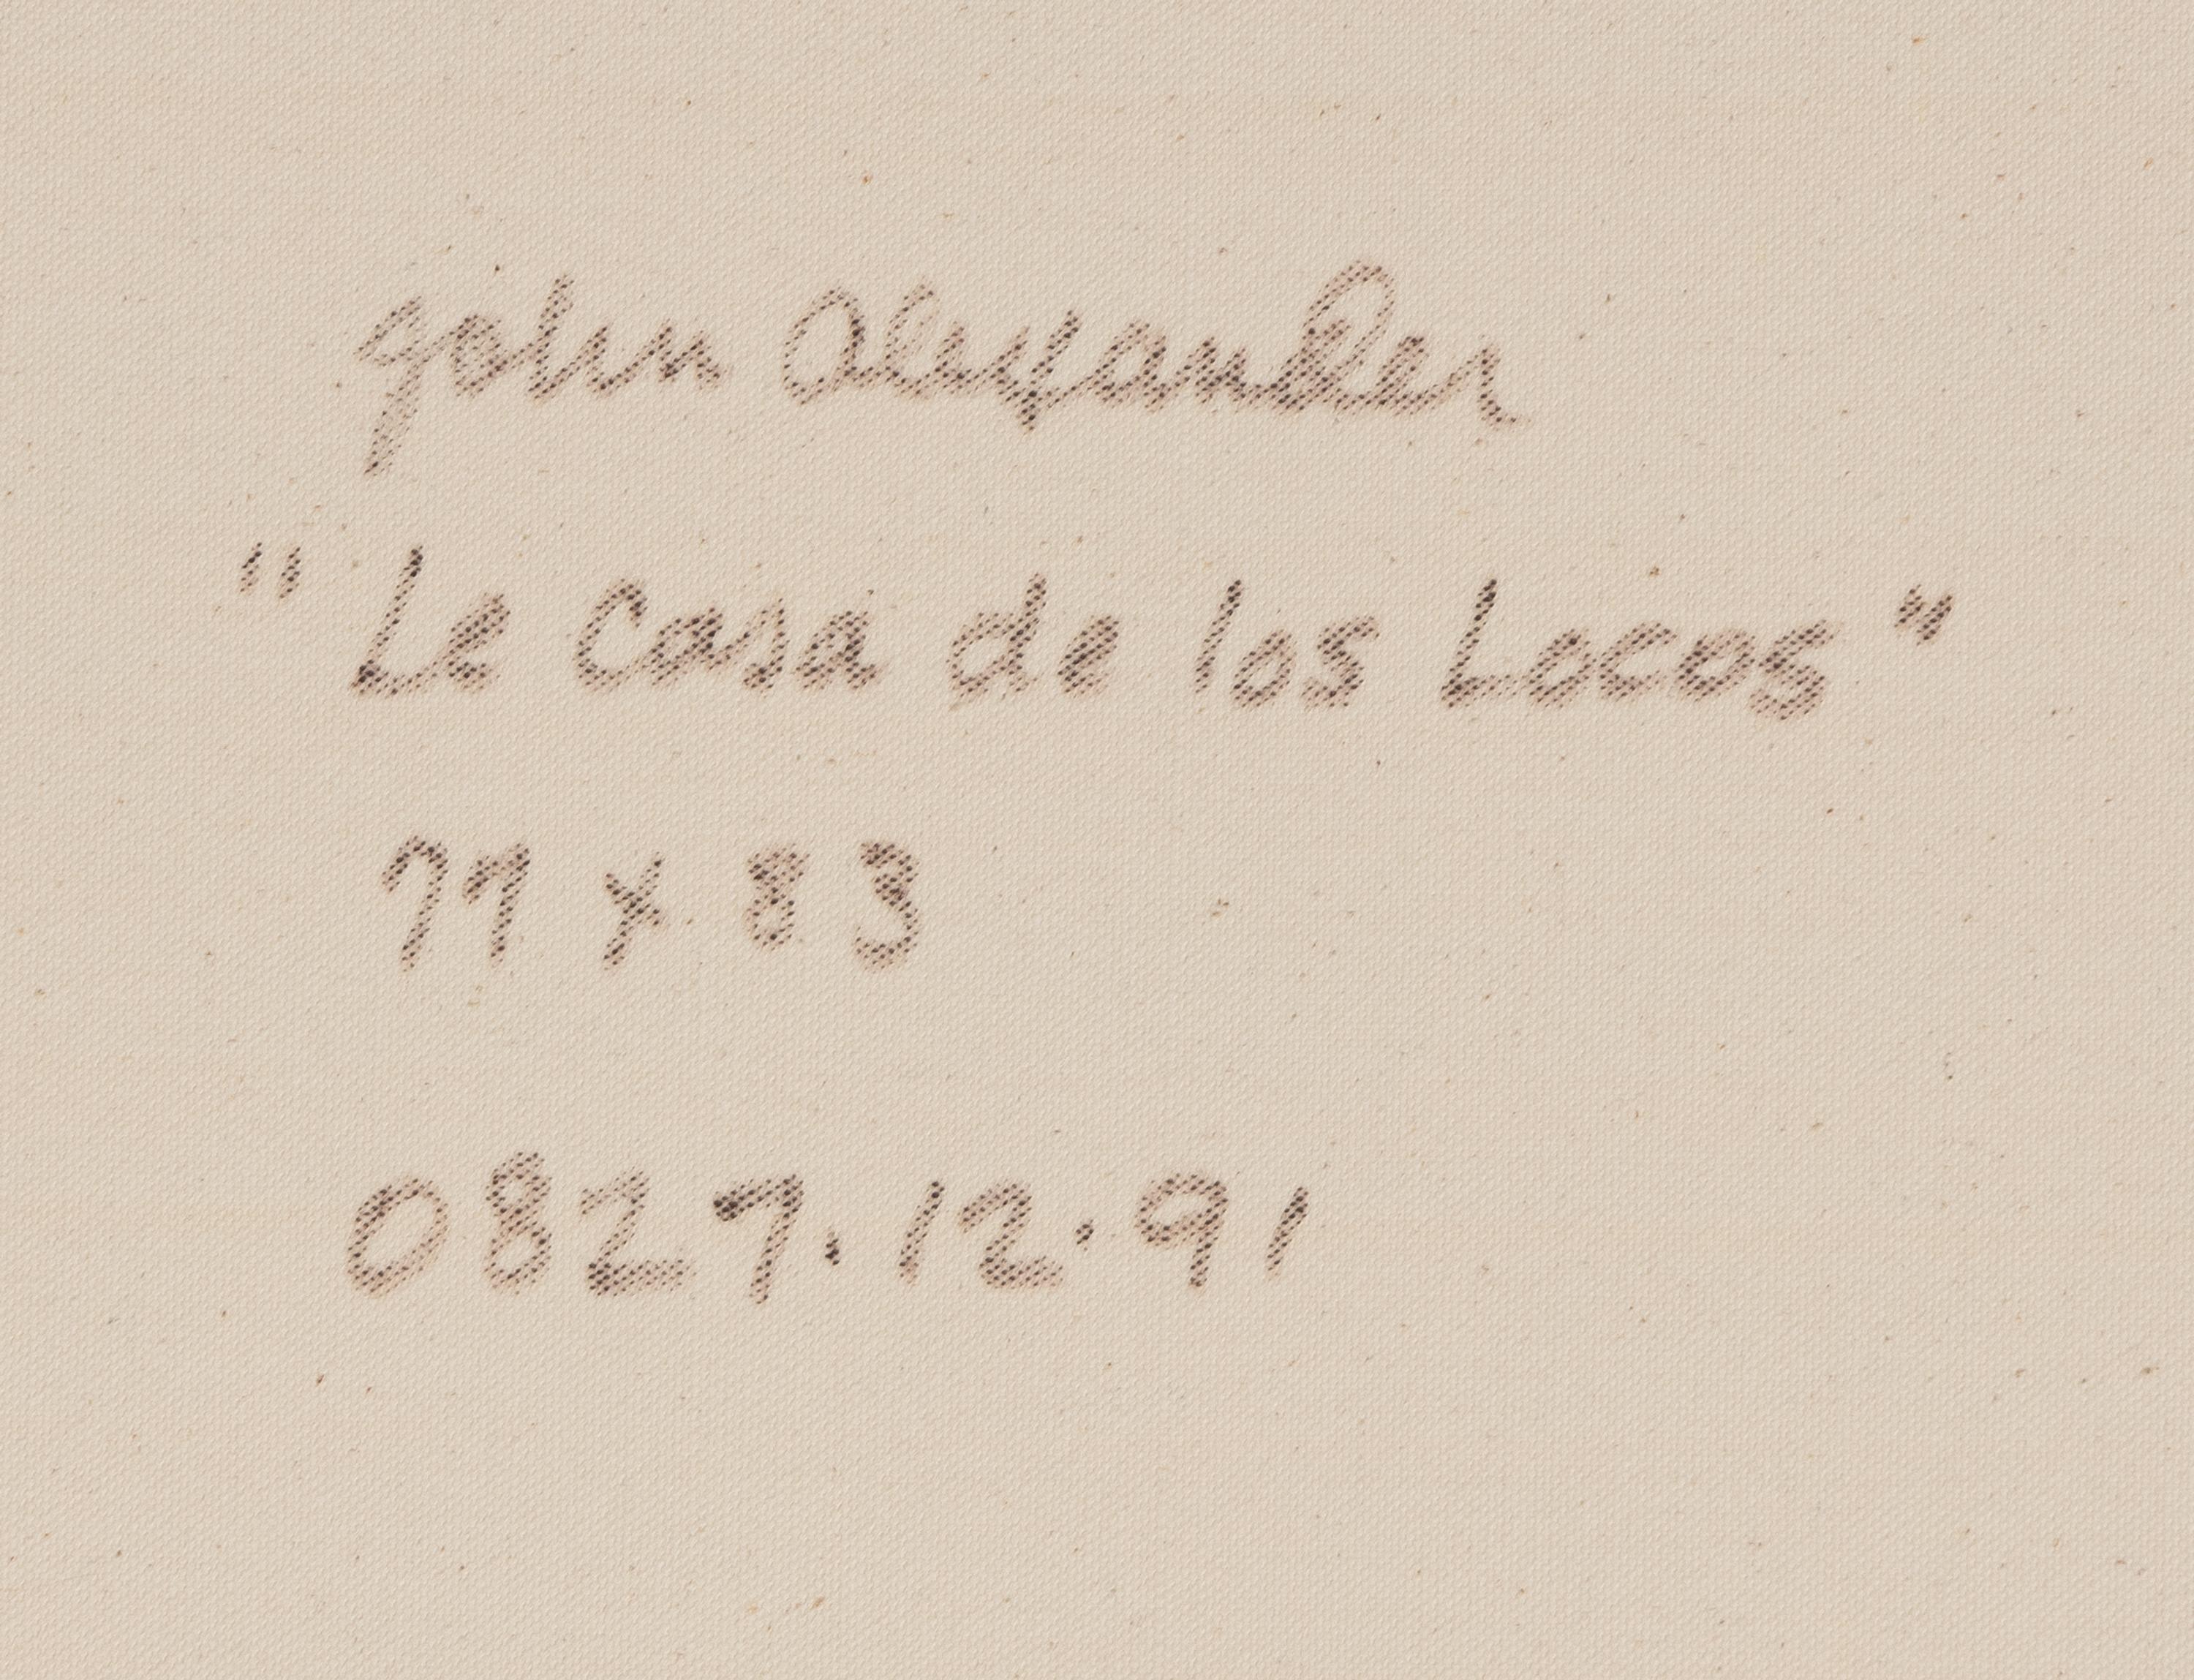 John Alexander
"Le Casa de los Locos"
77 x 83
0827.12.91